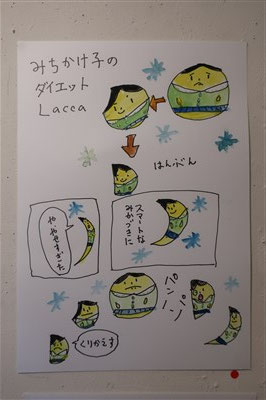 みちかけ子の
ダイエット
Lacca
はんぶん
スマートな
みかづきに
やややせすぎた
パンパン
くりかえす